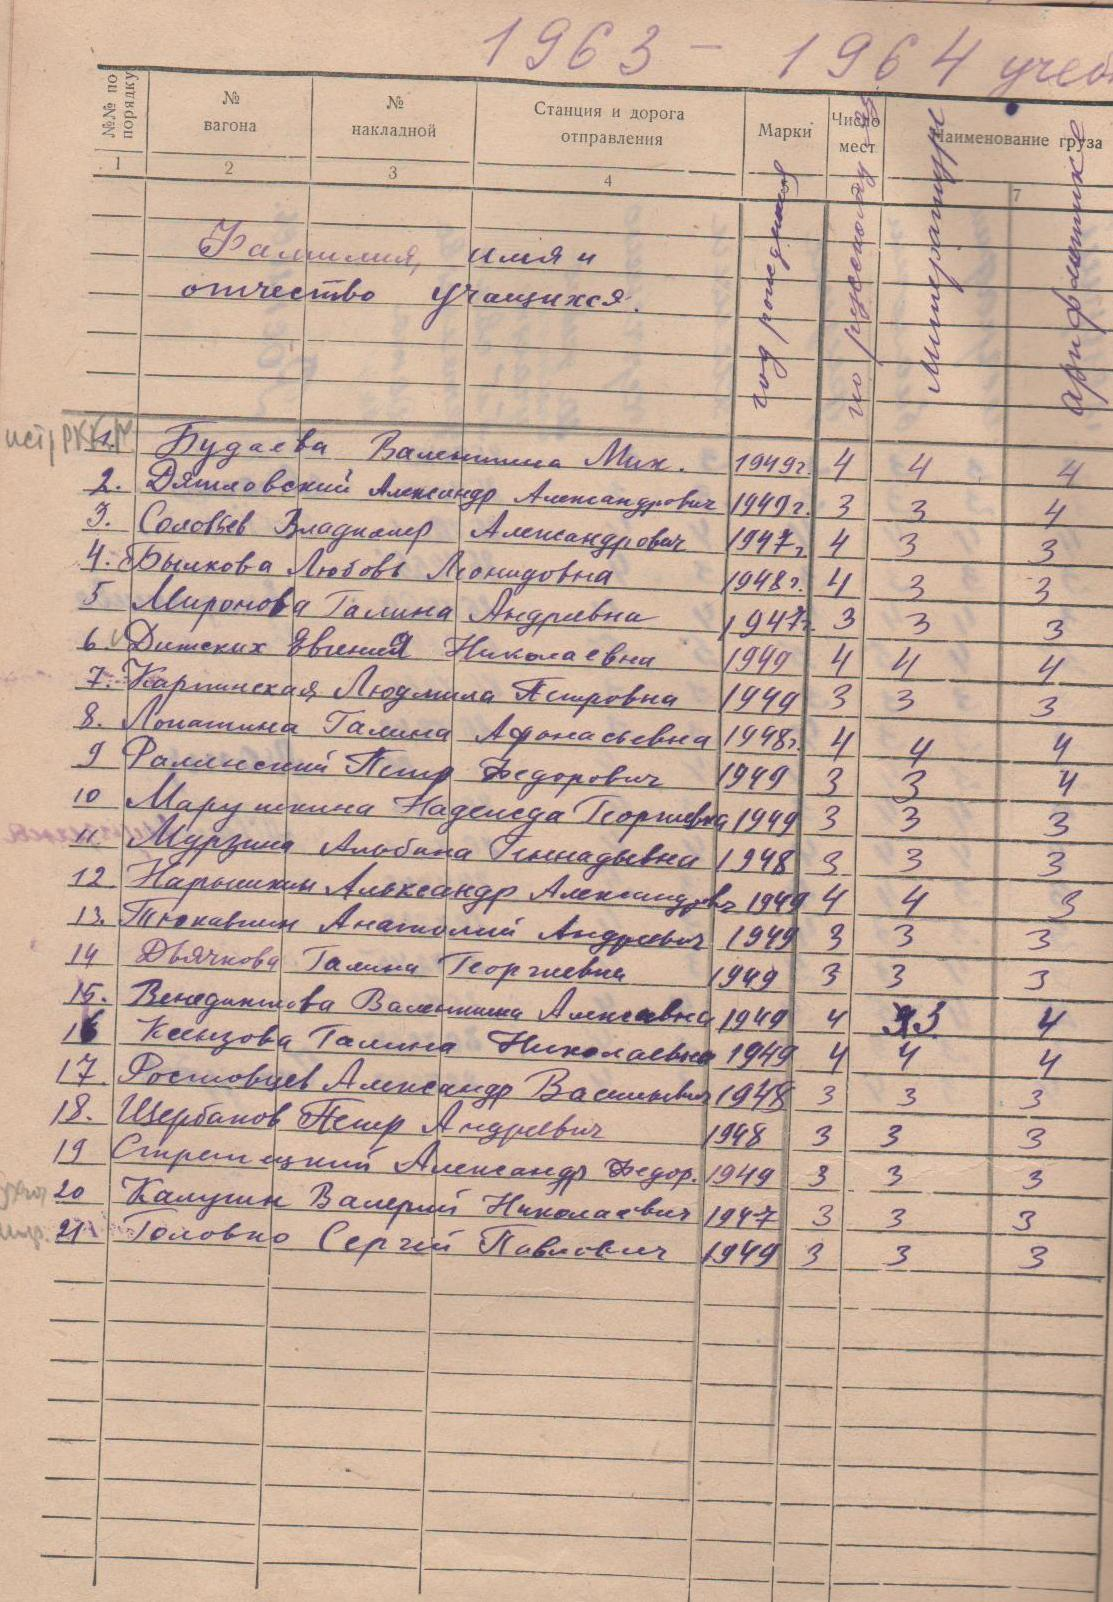 1963 - 1964 учеб
№№ по порядку
№ вагона
№ накладной
Станция и дорога отправления
Марки
Число мест
Наименование груза
1 2 3 4 7
Фамилия, имя и
отчество учащихся.
год рождения
по русскому яз.
литературе
арифметике
1. Будаева Валентина Мих. 1949г. 4 4 4
2. Дятловский Александр Александрович 1949г. 3 3 4
3. Соловьев Владимер Александрович 1947г 4 3 3
4. Былкова Любовь Леонидовна 1948г. 4 3 3
5 Миронова Галина Андреевна 1947г. 3 3 3
6. Дитских Евгения Николаевна 1949 4 4 4
7. Карпинская Людмила Петровна 1949 3 3 3
8. Лопатина Галина Афонасьевна 1948г. 4 4 4
9 Фалинский Петр Федорович 1949 3 3 4
10 Марушкина Надежда Георгиевна 1949 3 3 3
11. Мурзина Альбина Геннадьевна 1948 3 3 3
12 Нарышкин Александр Александрович 1949 4 4 3
13. Тюкавкин Анатолий Андреевич 1949 3 3 3
14 Дьячкова Галина Георгиевна 1949 3 3 3
15. Венедиктова Валентина Алексеевна 1949 4 3 4
16 Кензова Галина Николаевна 1949 4 4 4
17. Ростовцев Александр Васильевич 1948 3 3 3
18. Щербаков Петр Андреевич 1948 3 3 3
19 Стрепецкий Александр Федор. 1949 3 3 3
20 Калугин Валерий Николаевич 1947 3 3 3
21 Головко Сергей Павлович 1949 3 3 3